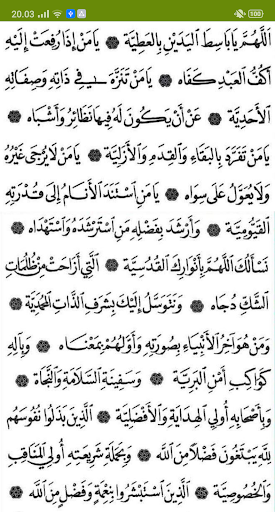 20.03 100
اَللّٰهُمَّ يَا بَاسِطَ الْيَدَيْنِ بِالْعَطِيَّةِ ۞ يَا مَنْ إِذَا رُفِعَتْ إِلَيْهِ
أَكُفُّ الْعَبْدِ كَفَاهُ ۞ يَا مَنْ تَنَزَّهَ فِي ذَاتِهِ وَصِفَاتِهِ
الْأَحَدِيَّةِ ۞ عَنْ أَنْ يَكُوْنَ لَهُ فِيْهَا نَظَائِرُ وَأَشْبَاه
يَا مَنْ تَفَرَّدَ بِالْبَقَاءِ وَالْقِدَمِ وَالْأَزَلِيَّةِ ۞ يَا مَنْ لَا يُرْجَى غَيْرُهُ
وَلَا يُعَوَّلُ عَلَى سِوَاه ۞ يَا مَنِ اسْتَنَدَ الْأَنَامُ إِلَى قُدْرَتِهِ
الْقَيُّوْمِيَّةِ ۞ وَأَرْشَدَ بِفَضْلِهِ مَنِ اسْتَرْشَدَهُ وَاسْتَهْدَاه
نَسْأَلُكَ اللّٰهُمَّ بِأَنْوَارِكَ الْقُدْسِيَّةِ ۞ الَّتِي أَزَاحَتْ مِنْ ظُلُمَاتِ
الشَّكِّ دُجَاه ۞ وَنَتَوَسَّلُ إِلَيْكَ بِشَرَفِ الذَّاتِ الْمُحَمَّدِيَّةِ
وَمَنْ هُوَ آخِرُ الْأَنْبِيَاءِ بِصُوْرَتِهِ وَأَوَّلُهُمْ بِمَعْنَاه ۞ وَبِآلِهِ
كَوَاكِبِ أَمْنِ الْبَرِيَّةِ ۞ وَسَفِيْنَةِ السَّلَامَةِ وَالنَّجَاةِ
وَبِأَصْحَابِهِ أُولِي الْهِدَايَةِ وَالْأَفْضَلِيَّةِ ۞ الَّذِيْنَ بَذَلُوْا نُفُوْسَهُمْ
لِلّٰهِ يَبْتَغُوْنَ فَضْلًا مِنَ اللّٰهِ ۞ وَبِحَمَلَةِ شَرِيْعَتِهِ أُولِي الْمَنَاقِبِ
وَالْخُصُوْصِيَّةِ ۞ الَّذِيْنَ اسْتَبْشَرُوْا بِنِعْمَةٍ وَفَضْلٍ مِنَ اللّٰهِ